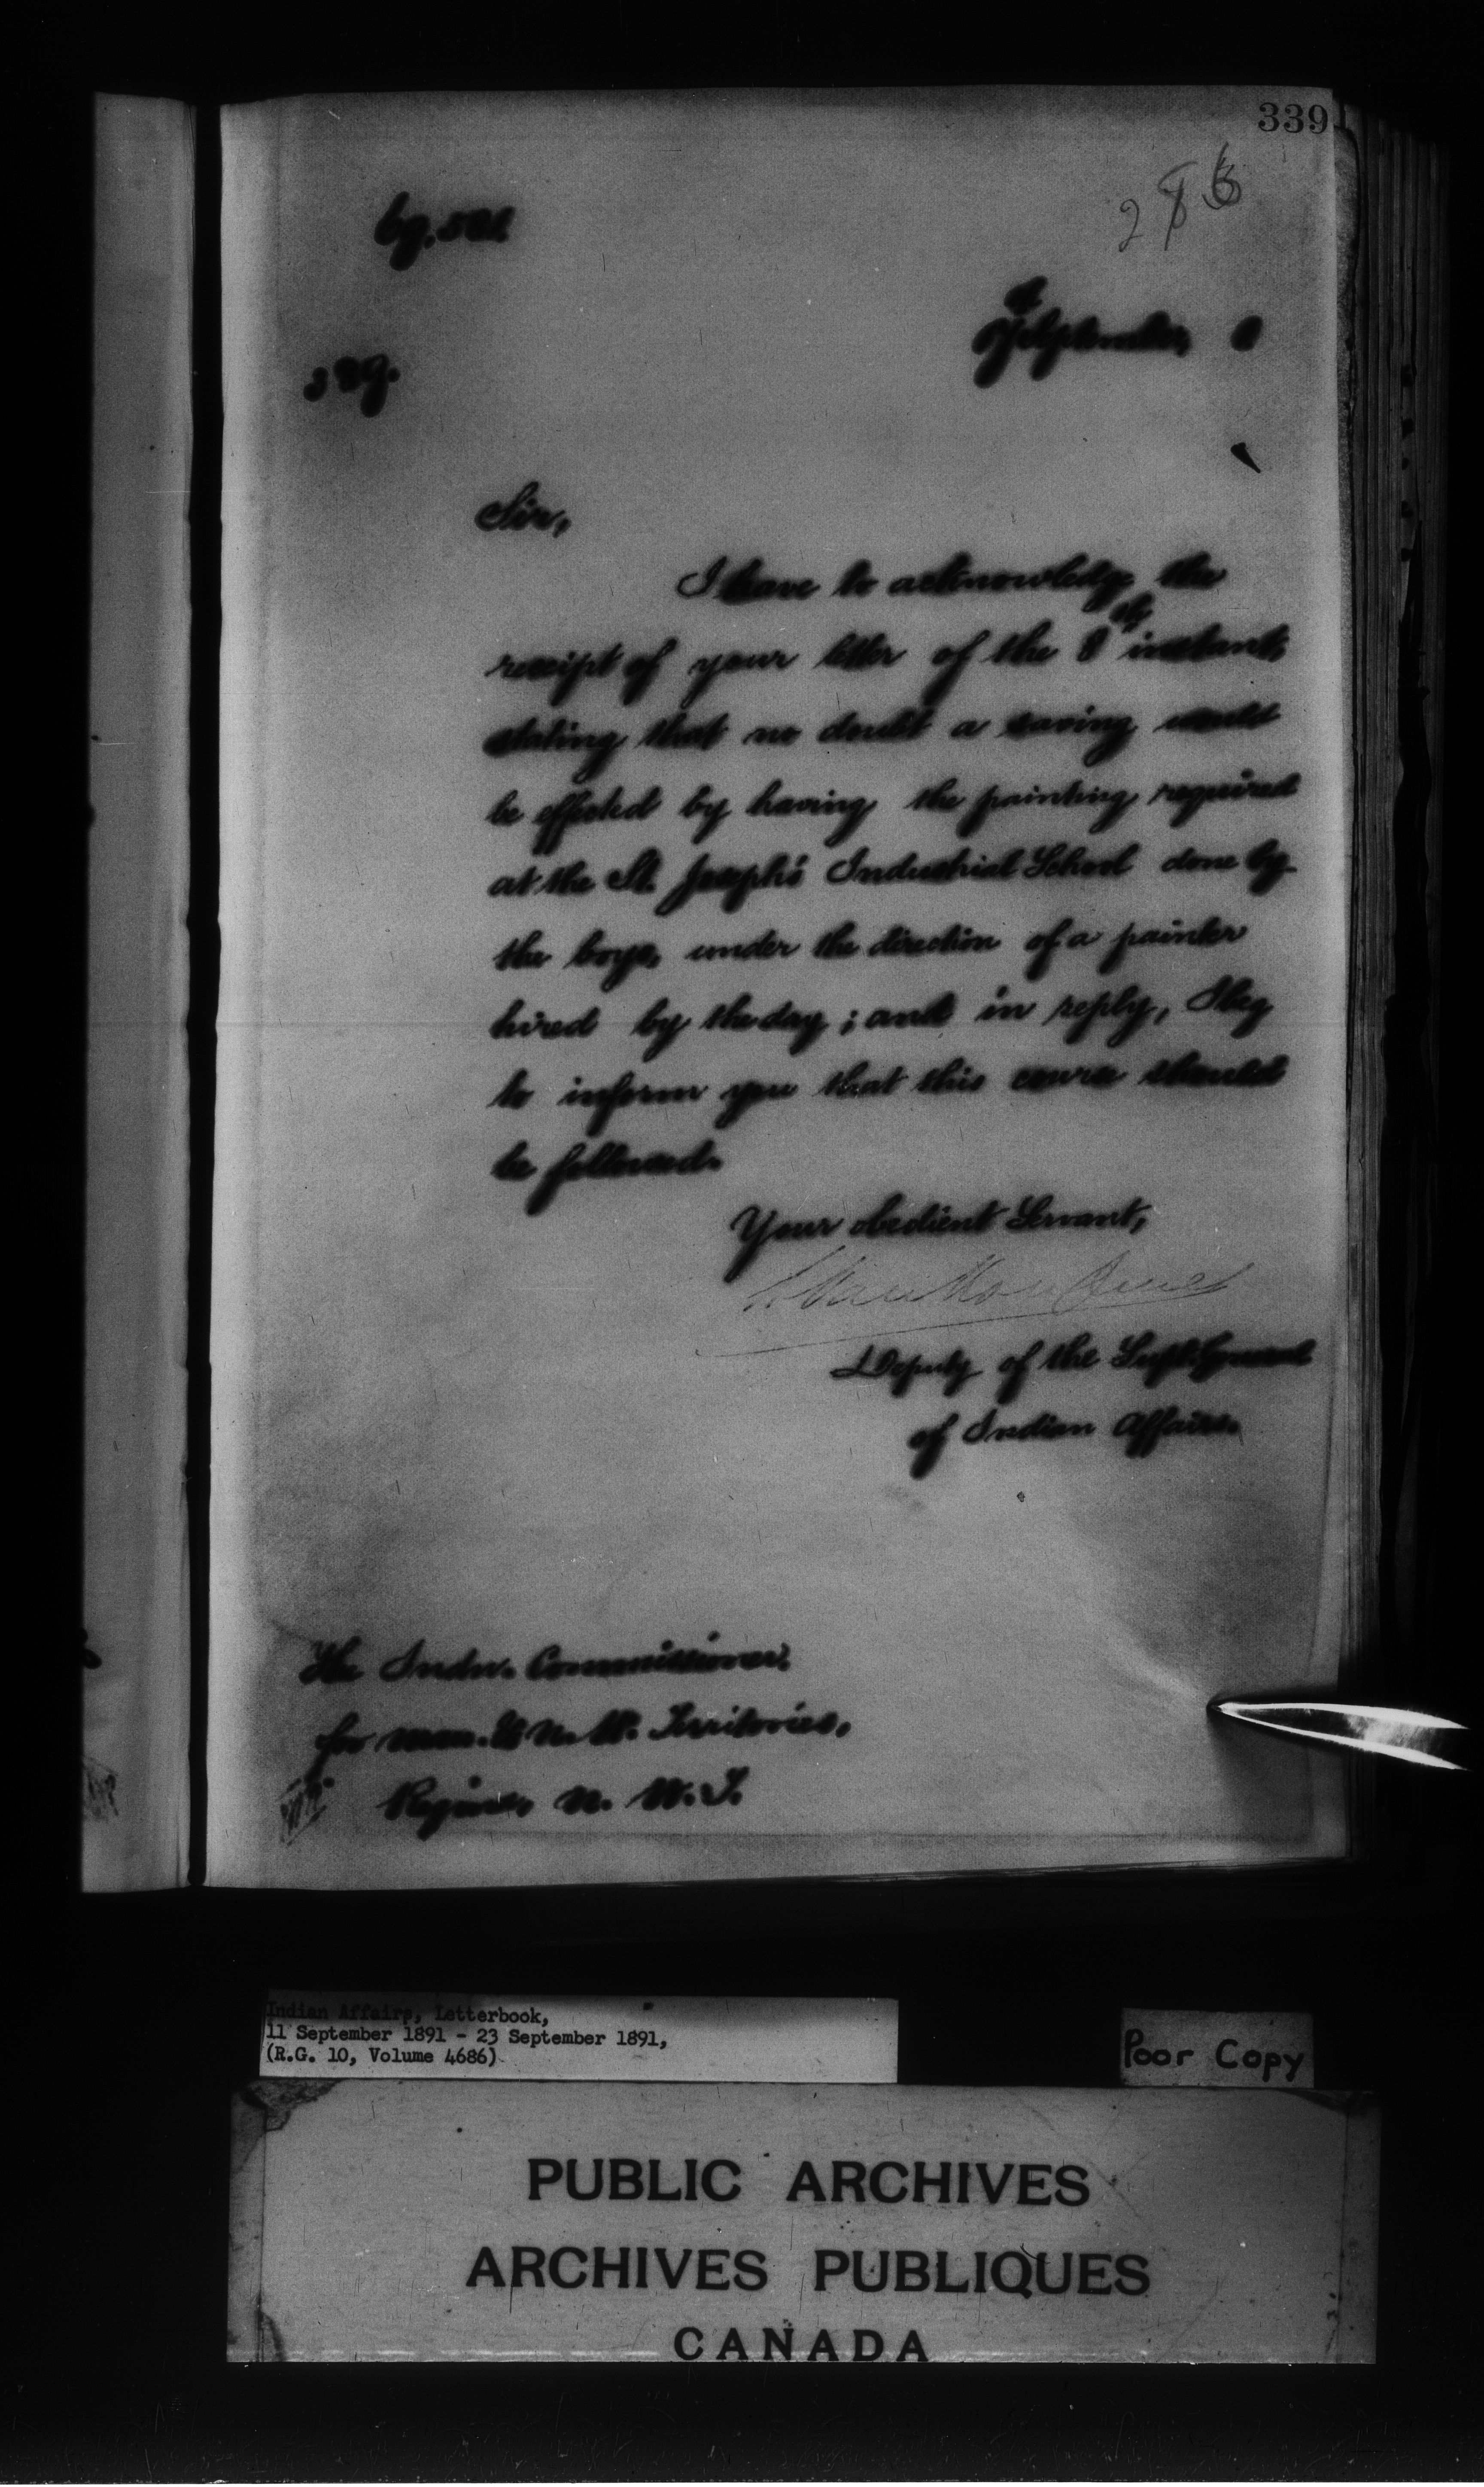 339
September,
Sir,
I have to acknowledge the
receipt of your letter of the 8th instant,
stating that no doubt a saving would
be effected by having the painting required
at the St. Joseph's Industrial School done by
the boys, under the direction of a painter
hired by the day; and in reply, I beg
to inform you that this course should
be followed.
Your obedient Servant,
L. Vankoughnet
Deputy of the Supt. General
of Indian Affairs.
The Indn. Commissioner
for Man. & N. W. Territories,
Regina, N. W. T.
Indian Affairs, Letterbook,
11 September 1891 - 23 September 1891,
(R.G. 10, Volume 4686)
Poor Copy
PUBLIC ARCHIVES
ARCHIVES PUBLIQUES
CANADA